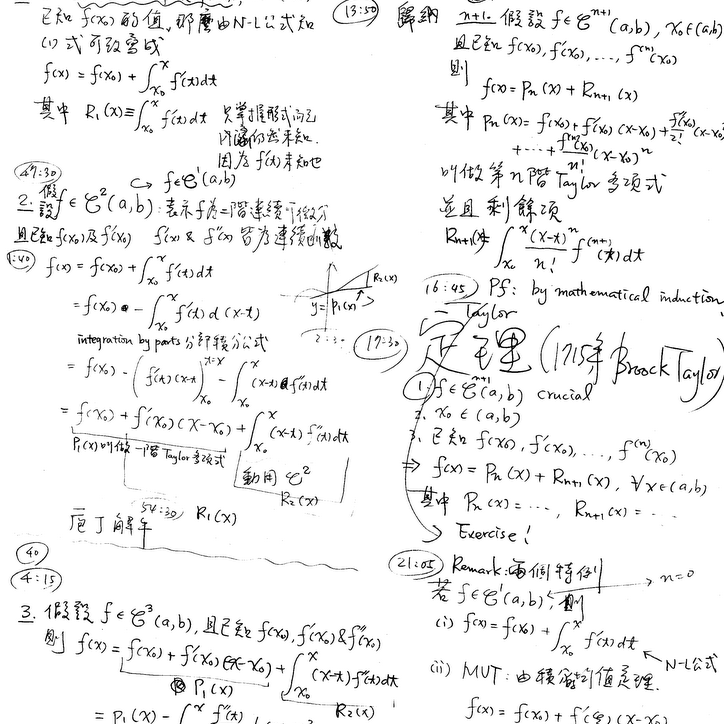 已知 f(x₀) 的值, 那麼由N-L公式知
(1) 式可改寫成
f(x) = f(x₀) + ∫_{x₀}^{x} f'(t)dt
其中 R₁(x) ≡ ∫_{x₀}^{x} f'(t)dt 只掌握形式而已
因為 f'(t) 未知也
47:30
→ f∈C¹(a,b)
2. 假設 f∈C²(a,b): 表示f為二階連續可微分
且已知f(x₀)及f'(x₀) f'(x) & f''(x) 皆為連續函數
1:40
f(x) = f(x₀) + ∫_{x₀}^{x} f'(t)dt
= f(x₀) - ∫_{x₀}^{x} f'(t) d(x-t)
R₂(x)
y = P₁(x)
integration by parts 分部積分公式
= f(x₀) - (f'(t)(x-t)|_{x₀}^{t=x} - ∫_{x₀}^{x} (x-t) f''(t)dt
= f(x₀) + f'(x₀)(x-x₀) + ∫_{x₀}^{x} (x-t) f''(t)dt
P₁(x) 叫做一階Taylor多項式
動用 C²
R₂(x)
54:30 R₁(x)
庖丁解牛
40
4:15
3. 假設 f∈C³(a,b), 且已知 f(x₀), f'(x₀) & f''(x₀)
則 f(x) = f(x₀) + f'(x₀)(x-x₀) + ∫_{x₀}^{x} (x-t) f''(t)dt
P₁(x)
R₂(x)
= P₁(x) - ∫ f''(t)
13:50
歸納 n+1. 假設 f∈C^{n+1}(a,b), x₀∈(a,b)
且已知 f(x₀), f'(x₀), ..., f^{(n)}(x₀)
則
f(x) = Pₙ(x) + Rₙ₊₁(x)
其中 Pₙ(x) = f(x₀) + f'(x₀)(x-x₀) + f''(x₀)/2! (x-x₀)
+ ... + f^{(n)}(x₀)/n! (x-x₀)ⁿ
叫做第n階Taylor多項式
並且剩餘項
Rₙ₊₁(x) = ∫_{x₀}^{x} (x-t)ⁿ/n! f^{(n+1)}(t)dt
16:45 Pf: by mathematical induction.
Taylor
17:30 定理 (1715年 Broock Taylor)
1. f∈C^{n+1}(a,b) crucial
2. x₀∈(a,b)
3. 已知 f(x₀), f'(x₀), ..., f^{(n)}(x₀)
⇒ f(x) = Pₙ(x) + Rₙ₊₁(x), ∀x∈(a,b)
其中 Pₙ(x) = ..., Rₙ₊₁(x) = ...
Exercise!
21:05 Remark: 兩個特例 → n=0
若 f∈C¹(a,b), 則
(i) f(x) = f(x₀) + ∫_{x₀}^{x} f'(t)dt
N-L公式
(ii) MVT: 由積分均值定理.
f(x) = f(x₀) + f'(ξ)(x-x₀)